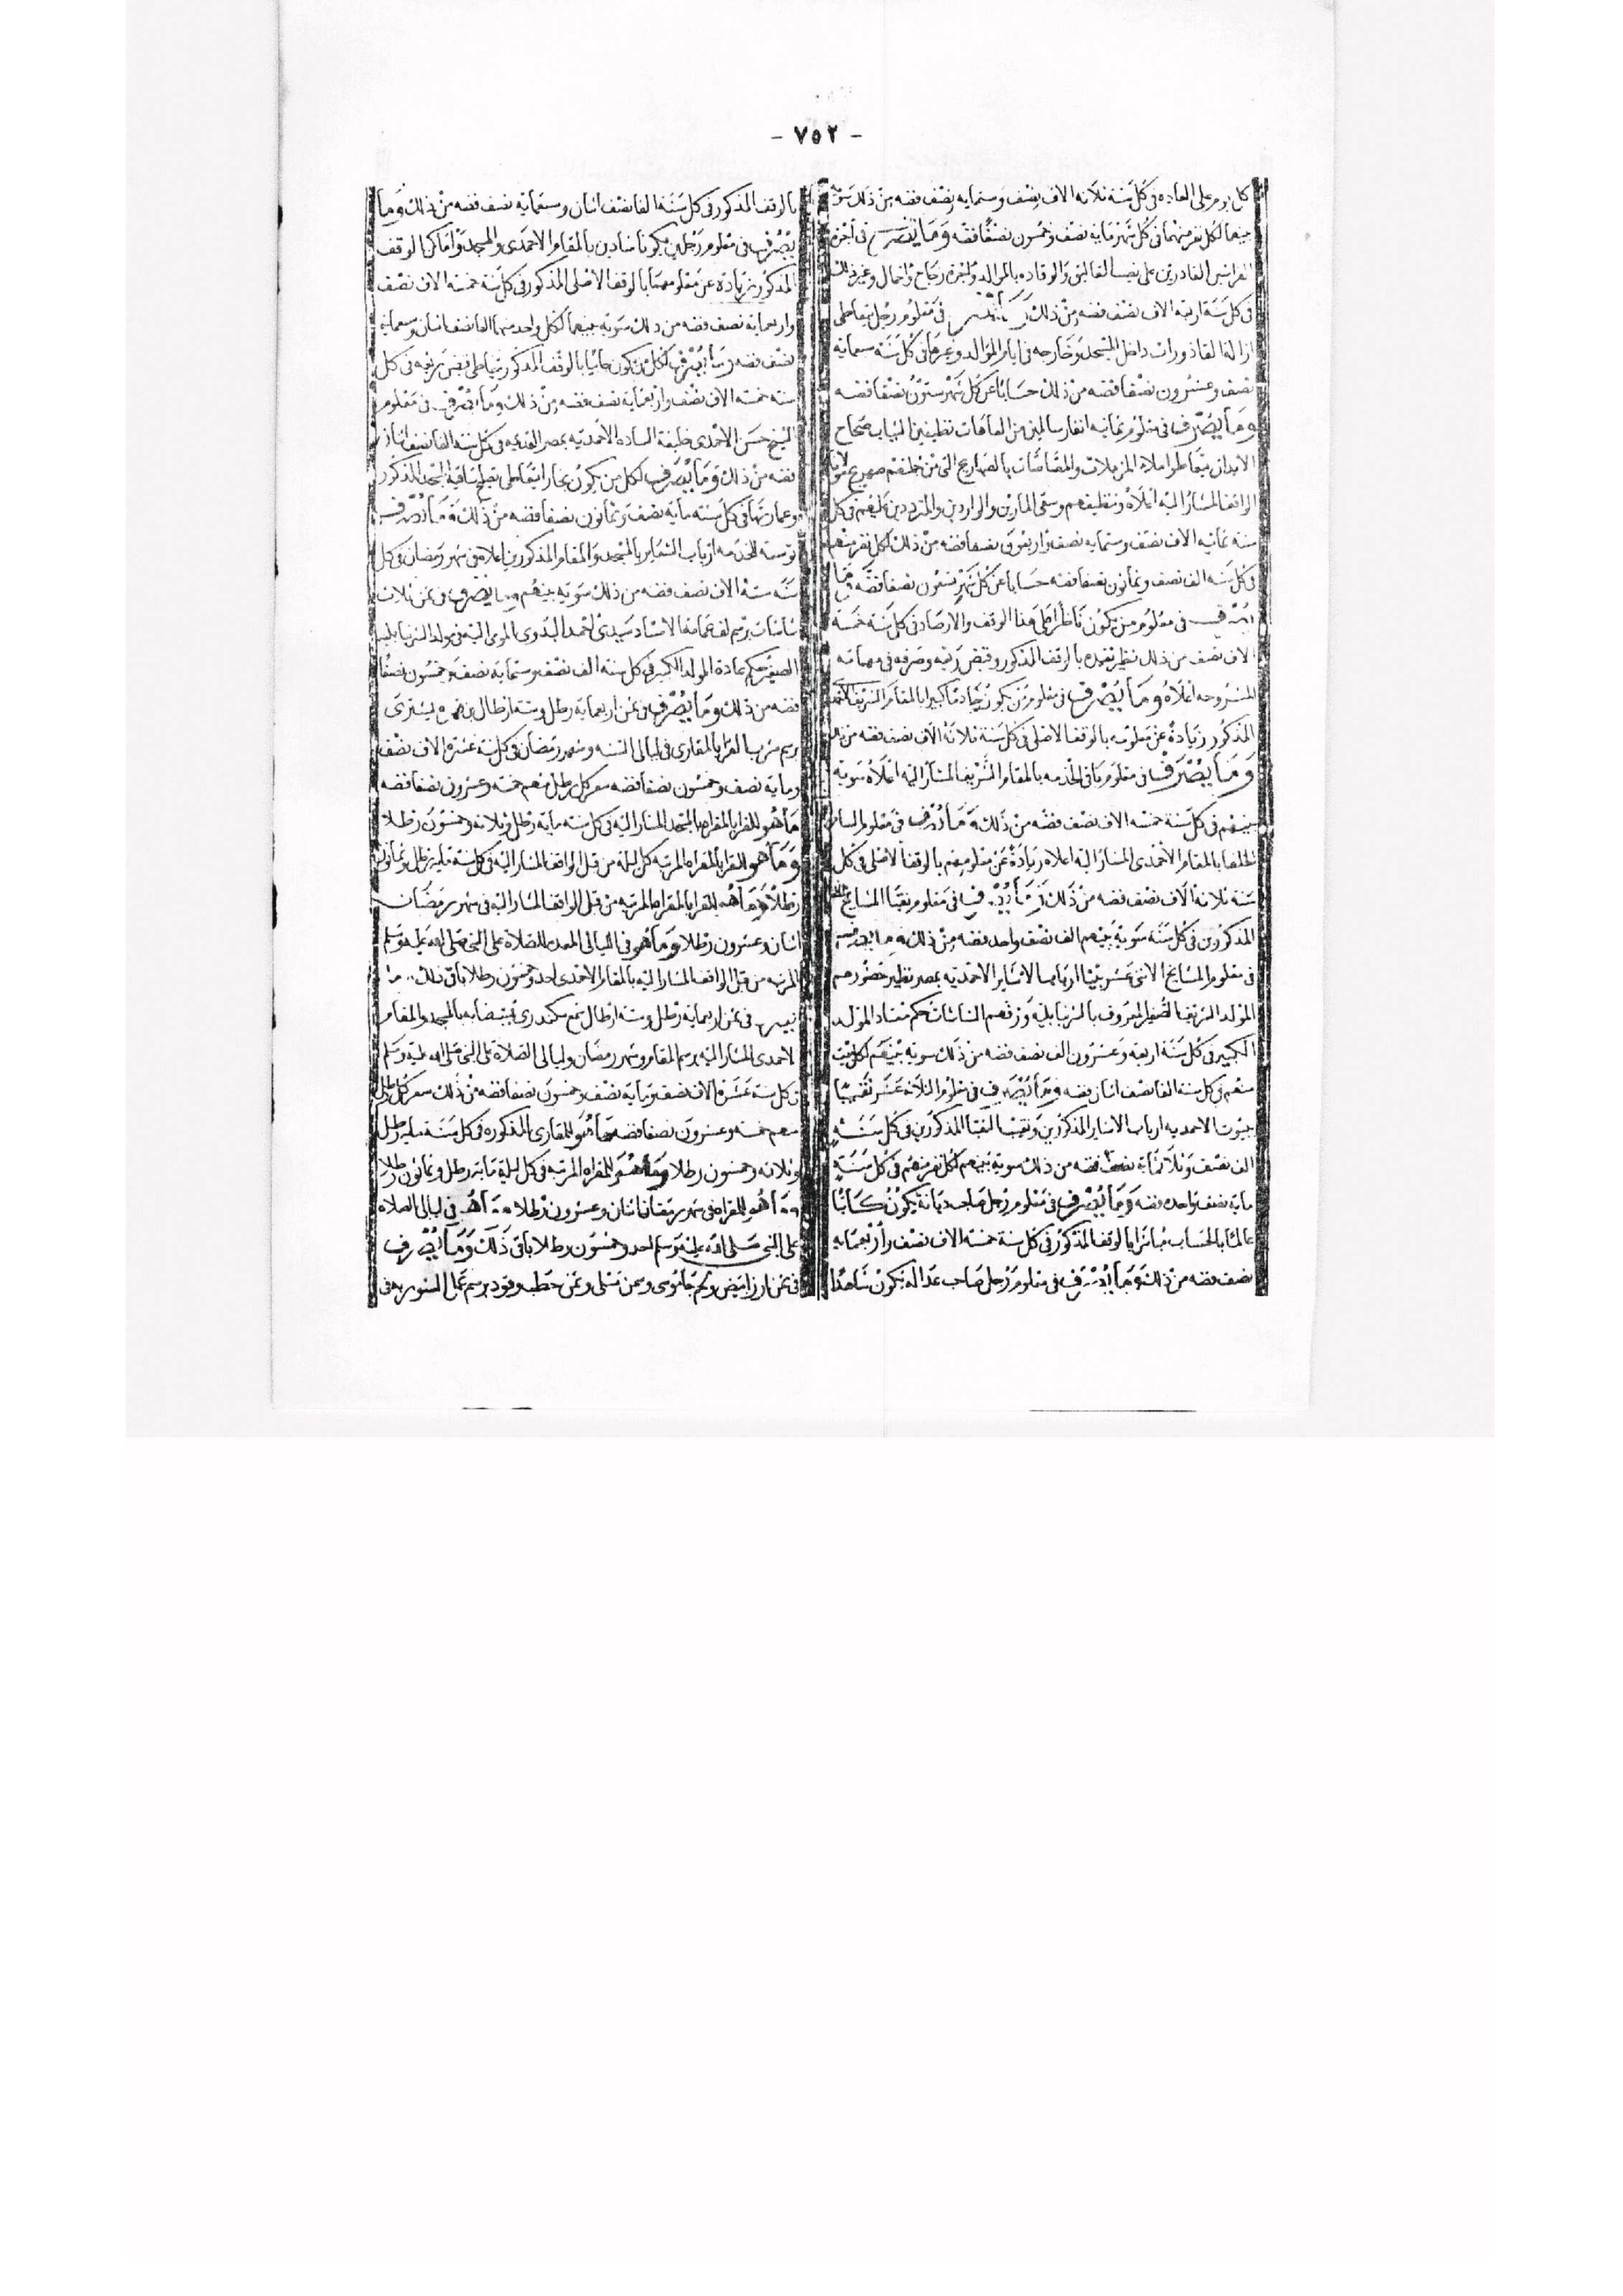 - ٧٥٢ -
كل يوم على العاده فى كل سنة ثلاثه الاف نصف وستمايه نصف فضه من ذلك سوية
بينهما لكل نفر منهما فى كل شهر مايه نصف وخمسون نصفا فضه وما يصرف فى أجرة
الفراشين القادرين على الوقاده بالموالد واجرة زجاج واحمال وغير ذلك
فى كل سنة اربعة الاف نصف فضه من ذلك وما يصرف فى معلوم رجل يتعاطى
ازالة القاذورات داخل المسجد وخارجه فى ايام الموالد وغيرها فى كل سنة سبعمايه
نصف وعشرون نصفا فضه من ذلك حسابا عن كل شهر ستون نصفا فضه
وما يصرف فى معلوم ثمانيه انفار سالمين من العاهات نظيفين الثياب صحاح
الابدان يتعاطوا ملاء المزملات والمصاصات بالصهاريج التى من صهريج مولانا
الواقف المشار اليه اعلاه وتنظيفهم وسقى المارين والواردين والمترددين عليهم فى كل
سنه ثمانيه الاف نصف وستمايه نصف واربعون نصفا فضه من ذلك لكل نفر منهم
فى كل سنه الف نصف وثمانون نصفا فضه حسابا عن كل شهر تسعون نصفا فضه وما
يصرف فى معلوم من يكون ناظرا على هذا الوقف والارصاد فى كل سنة خمسة
الاف نصف من ذلك نظير تقيده بالوقف المذكور وقبض ريعه وصرفه فى مهماته
المشروحه اعلاه وما يصرف فى معلوم من يكون خادما كبيرا بالمقام الشريف الاحمدى
المذكور زيادة عن معلومه بالوقف الاصلى فى كل سنة ثلاثة الاف نصف فضه من ذلك
وما يصرف فى معلوم باقى الخدمه بالمقام الشريف المشار اليه اعلاه سوية
بينهم فى كل سنة خمسه الاف نصف فضه من ذلك وما يصرف فى معلوم السادة
الخلفا بالمقام الاحمدى المشار اليه اعلاه زيادة عن معلومهم بالوقف الاصلى فى كل
سنة ثلاثة الاف نصف فضه من ذلك وما يصرف فى معلوم نقبا المشايخ
المذكورين فى كل سنة سوية بينهم الف نصف واحد فضه من ذلك وما يصرف
فى معلوم المشايخ الاثنى عشر بيتا ارباب الاشاير الاحمديه بمصر نظير حضورهم
المولد الشريف الصغير المعروف بالشرنبابلية وزفهم الشاشات حكم معتاد المولد
الكبير فى كل سنة اربعة وعشرون الف نصف فضه من ذلك سوية بينهم لكل بيت
منهم فى كل سنة الفا نصف اثنان فضه وما يصرف فى معلوم الثلاثة عشر نقيبا
بيوت الاحمديه ارباب الاشاير المذكورين ونقيب النقبا المذكورين فى كل سنة
الف نصف وثلاثمايه نصف فضه من ذلك سوية بينهم لكل نفر منهم فى كل سنة
مايه نصف واحده فضه وما يصرف فى معلوم رجل صاحب ديانة يكون كاتبا
عالما بالحساب مباشرا بالوقف المذكور فى كل سنة خمسة الاف نصف واربعمايه
نصف فضه من ذلك وما يصرف فى معلوم رجل صاحب عداله يكون شاهدا
بالوقف المذكور فى كل سنة الفا نصف اثنان وسبعمايه نصف فضه من ذلك وما
يصرف فى معلوم رجلين يكونا شادين بالمقام الاحمدى والمسجد واماكن الوقف
المذكور زيادة عن معلومهما بالوقف الاصلى المذكور فى كل سنة خمسه الاف نصف
واربعماية نصف فضه من ذلك سوية بينهما لكل واحد منهما الفا نصف اثنان وسبعماية
نصف فضه وما يصرف لكل من يكون جابيا بالوقف المذكور يتعاطى قبض ريعه فى كل
سنه خمسة الاف نصف واربعماية نصف فضه من ذلك وما يصرف فى معلوم
الشيخ حسن الاحمدى خليفة الساده الاحمديه بمصر القديمه فى كل سنه الفا نصف اثنان
فضه من ذلك وما يصرف لكل من يكون نجارا يتعاطى تصليح ساقية المسجد المذكور
وعمارتها فى كل سنه مايه نصف وثمانون نصفا فضه من ذلك وما يصرف
توسعة للخدمه ارباب الشعاير بالمسجد والمقام المذكورين اعلاه فى شهر رمضان فى كل
سنة ستة الاف نصف فضه من ذلك سوية بينهم وما يصرف فى ثمن ثلاث
شاشات برسم لف عمامة الاستاذ سيدى احمد البدوى المومى اليه فى مولد الشرنبابليه
الصغير حكم عادة المولد الكبير فى كل سنه الف نصف وستماية نصف وخمسون نصفا
فضه من ذلك وما يصرف فى ثمن اربعماية رطل وستة ارطال بن يشترى
برسم شرب القرا بالمقارى فى ليالى السنه وشهر رمضان فى كل سنة عشرة الاف نصف
وماية نصف وخمسون نصفا فضه سعر كل رطل منهم خمسه وعشرون نصفا فضه
ما هو للقرا بالمقراه بالمسجد المشار اليه فى كل سنه ماية رطل وثلاثه وخمسون رطلا
وما هو للقرا بالمقراه المرتبه كل ليلة من قبل الواقف المشار اليه فى كل سنة ماية رطل وثمانون
رطلا وما هو للقرا بالمقراه المرتبه من قبل الواقف المشار اليه فى شهر رمضان
اثنان وعشرون رطلا وما هو فى الليالى المعده للصلاة على النبى صلى الله عليه وسلم
المرتبه من قبل الواقف المشار اليه بالمقام الاحمدى احد وخمسون رطلا باقى ذلك وما
يصرف فى ثمن اربعماية رطل وستة ارطال شمع سكندرى يستضا به بالمسجد والمقام
الاحمدى المشار اليه برسم المقام وشهر رمضان وليالى الصلاة على النبى صلى الله عليه وسلم
فى كل سنة عشرة الاف نصف وماية نصف وخمسون نصفا فضه من ذلك سعر كل رطل
منهم خمسه وعشرون نصفا فضه ما هو للمقارى المذكوره فى كل سنة ماية رطل
وثلاثه وخمسون رطلا وما هو للمقراه المرتبه فى كل ليلة ماية رطل وثمانون رطلا
وما هو للمقراه فى شهر رمضان اثنان وعشرون رطلا وما هو فى ليالى الصلاه
على النبى صلى الله عليه وسلم احد وخمسون رطلا باقى ذلك وما يصرف
فى ثمن ارز ابيض ولحم جاموسى وسمن مسلى وثمن حطب وقود برسم عمل الشوربه فى